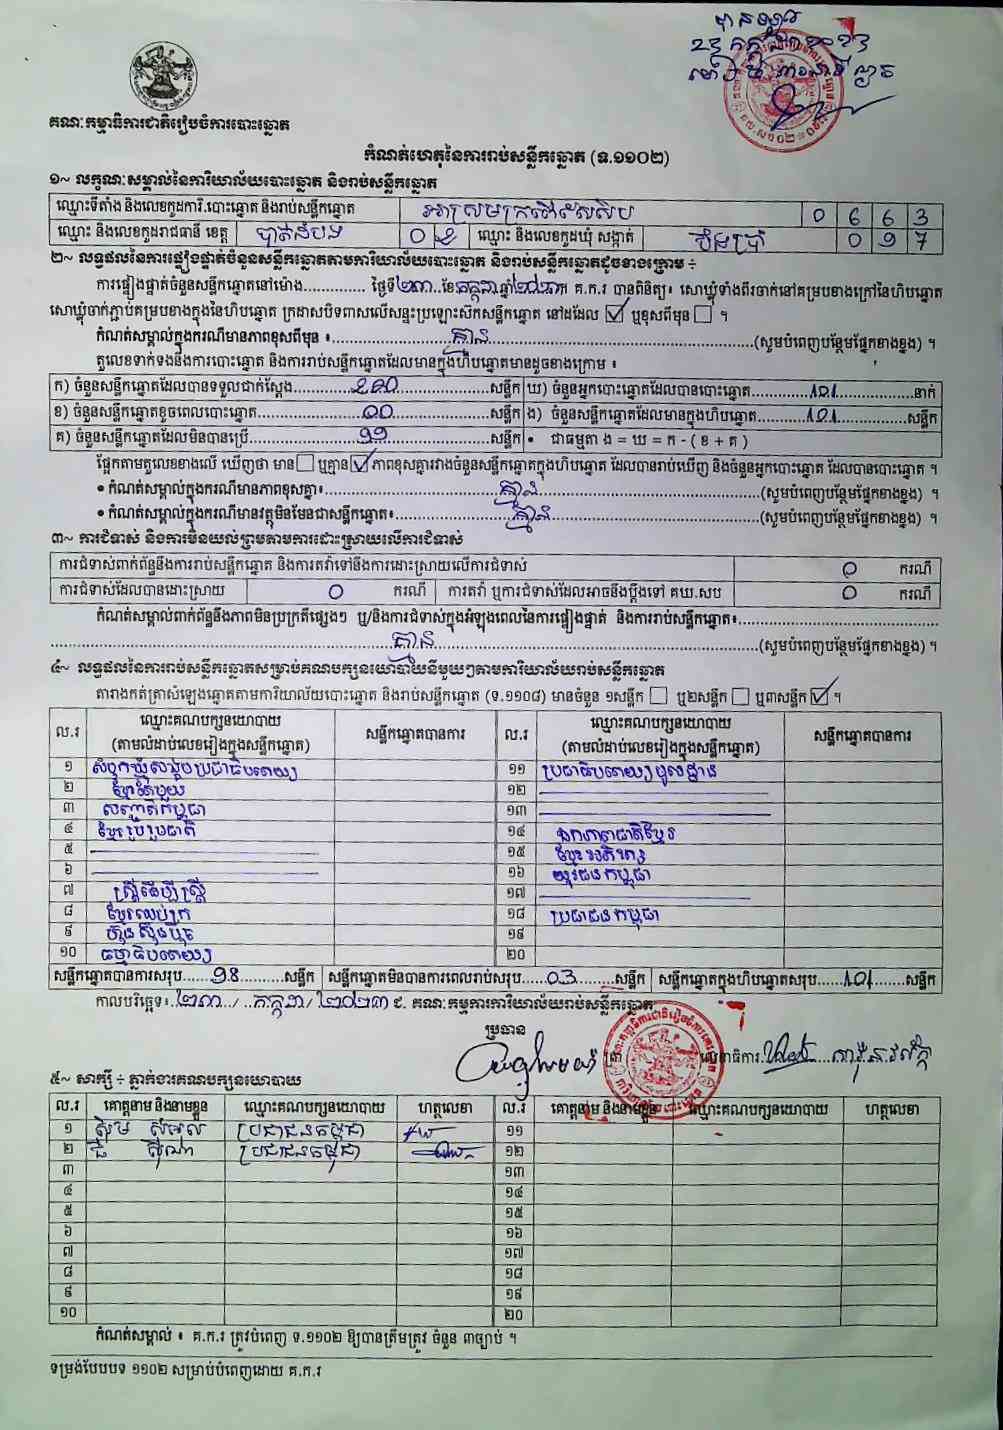 បានទទួល
គណៈកម្មាធិការជាតិរៀបចំការបោះឆ្នោត
កំណត់ហេតុនៃការរាប់សន្លឹកឆ្នោត (ទ.១១០២)
១~ លក្ខណៈសម្គាល់នៃការិយាល័យបោះឆ្នោត និងរាប់សន្លឹកឆ្នោត
ឈ្មោះទីតាំង និងលេខកូដការិ.បោះឆ្នោត និងរាប់សន្លឹកឆ្នោត 0 6 6 3
ឈ្មោះ និងលេខកូដរាជធានី ខេត្ត បាត់ដំបង 0 2 ឈ្មោះ និងលេខកូដឃុំ សង្កាត់ បឹងប្រាំ 0 9 7
២~ លទ្ធផលនៃការផ្ទៀងផ្ទាត់ចំនួនសន្លឹកឆ្នោតតាមការិយាល័យបោះឆ្នោត និងរាប់សន្លឹកឆ្នោតដូចខាងក្រោម ÷
ការផ្ទៀងផ្ទាត់ចំនួនសន្លឹកឆ្នោតនៅម៉ោង.............. ថ្ងៃទី២៣..ខែកក្កដាឆ្នាំ២០២៣ គ.ក.រ បានពិនិត្យ៖ សោឃ្លុំទាំងពីរចាក់នៅគម្របខាងក្រៅនៃហិបឆ្នោត
សោឃ្លុំចាក់ភ្ជាប់គម្របខាងក្នុងនៃហិបឆ្នោត ក្រដាសបិទពាសលើសន្ទះប្រឡោះស៊ីកសន្លឹកឆ្នោត នៅដដែល ☑ ឬខុសពីមុន ☐ ។
កំណត់សម្គាល់ក្នុងករណីមានភាពខុសពីមុន ៖ គ្មាន (សូមបំពេញបន្ថែមផ្នែកខាងខ្នង) ។
តួលេខទាក់ទងនឹងការបោះឆ្នោត និងការរាប់សន្លឹកឆ្នោតដែលមានក្នុងហិបឆ្នោតមានដូចខាងក្រោម ៖
ក) ចំនួនសន្លឹកឆ្នោតដែលបានទទួលជាក់ស្តែង 200 សន្លឹក ឃ) ចំនួនអ្នកបោះឆ្នោតដែលបានបោះឆ្នោត 101 នាក់
ខ) ចំនួនសន្លឹកឆ្នោតខូចពេលបោះឆ្នោត 00 សន្លឹក ង) ចំនួនសន្លឹកឆ្នោតដែលមានក្នុងហិបឆ្នោត 101 សន្លឹក
គ) ចំនួនសន្លឹកឆ្នោតដែលមិនបានប្រើ 99 សន្លឹក • ជាធម្មតា ង = ឃ = ក - ( ខ + គ )
ផ្អែកតាមតួលេខខាងលើ ឃើញថា មាន ☐ ឬគ្មាន ☑ ភាពខុសគ្នារវាងចំនួនសន្លឹកឆ្នោតក្នុងហិបឆ្នោត ដែលបានរាប់ឃើញ និងចំនួនអ្នកបោះឆ្នោត ដែលបានបោះឆ្នោត ។
• កំណត់សម្គាល់ក្នុងករណីមានភាពខុសគ្នា៖ គ្មាន (សូមបំពេញបន្ថែមផ្នែកខាងខ្នង) ។
• កំណត់សម្គាល់ក្នុងករណីមានវត្ថុមិនមែនជាសន្លឹកឆ្នោត៖ គ្មាន (សូមបំពេញបន្ថែមផ្នែកខាងខ្នង) ។
៣~ ការជំទាស់ និងការមិនយល់ព្រមតាមការដោះស្រាយលើការជំទាស់
ការជំទាស់ពាក់ព័ន្ធនឹងការរាប់សន្លឹកឆ្នោត និងការតវ៉ាទៅនឹងការដោះស្រាយលើការជំទាស់ 0 ករណី
ការជំទាស់ដែលបានដោះស្រាយ 0 ករណី ការតវ៉ា ឬការជំទាស់ដែលអាចនឹងប្តឹងទៅ គឃ.សប 0 ករណី
កំណត់សម្គាល់ពាក់ព័ន្ធនឹងភាពមិនប្រក្រតីផ្សេងៗ ឬ/និងការជំទាស់ក្នុងអំឡុងពេលនៃការផ្ទៀងផ្ទាត់ និងការរាប់សន្លឹកឆ្នោត៖
គ្មាន (សូមបំពេញបន្ថែមផ្នែកខាងខ្នង) ។
៤~ លទ្ធផលនៃការរាប់សន្លឹកឆ្នោតសម្រាប់គណបក្សនយោបាយនីមួយៗតាមការិយាល័យរាប់សន្លឹកឆ្នោត
តារាងកត់ត្រាសំឡេងឆ្នោតតាមការិយាល័យបោះឆ្នោត និងរាប់សន្លឹកឆ្នោត (ទ.១១០៨) មានចំនួន ១សន្លឹក ☐ ឬ២សន្លឹក ☐ ឬ៣សន្លឹក ☑ ។
ល.រ ឈ្មោះគណបក្សនយោបាយ (តាមលំដាប់លេខរៀងក្នុងសន្លឹកឆ្នោត) សន្លឹកឆ្នោតបានការ ល.រ ឈ្មោះគណបក្សនយោបាយ (តាមលំដាប់លេខរៀងក្នុងសន្លឹកឆ្នោត) សន្លឹកឆ្នោតបានការ
១ សំបុកឃ្មុំសង្គមប្រជាធិបតេយ្យ ១១ ប្រជាធិបតេយ្យមូលដ្ឋាន
២ ខ្មែរតែមួយ ១២
៣ សញ្ជាតិកម្ពុជា ១៣
៤ ខ្មែររួបរួមជាតិ ១៤ ឯកភាពជាតិខ្មែរ
៥ ១៥ ខ្មែរអភិរក្ស
៦ ១៦ យុវជនកម្ពុជា
៧ ស្ត្រីដើម្បីស្ត្រី ១៧
៨ ខ្មែរឈប់ក្រ ១៨ ប្រជាជនកម្ពុជា
៩ ហ៊្វុនស៊ិនប៉ិច ១៩
១០ ធម្មាធិបតេយ្យ ២០
សន្លឹកឆ្នោតបានការសរុប 98 សន្លឹក សន្លឹកឆ្នោតមិនបានការពេលរាប់សរុប 03 សន្លឹក សន្លឹកឆ្នោតក្នុងហិបឆ្នោតសរុប 101 សន្លឹក
កាលបរិច្ឆេទ៖ ២៣ / កក្កដា / ២០២៣ ជ. គណៈកម្មការការិយាល័យរាប់សន្លឹកឆ្នោត
ប្រធាន
លេខាធិការ
៥~ សាក្សី ÷ ភ្នាក់ងារគណបក្សនយោបាយ
ល.រ គោត្តនាម និងនាមខ្លួន ឈ្មោះគណបក្សនយោបាយ ហត្ថលេខា ល.រ គោត្តនាម និងនាមខ្លួន ឈ្មោះគណបក្សនយោបាយ ហត្ថលេខា
១ ប្រជាជនកម្ពុជា ១១
២ ប្រជាជនកម្ពុជា ១២
៣ ១៣
៤ ១៤
៥ ១៥
៦ ១៦
៧ ១៧
៨ ១៨
៩ ១៩
១០ ២០
កំណត់សម្គាល់ ៖ គ.ក.រ ត្រូវបំពេញ ទ.១១០២ ឱ្យបានត្រឹមត្រូវ ចំនួន ៣ច្បាប់ ។
ទម្រង់បែបបទ ១១០២ សម្រាប់បំពេញដោយ គ.ក.រ